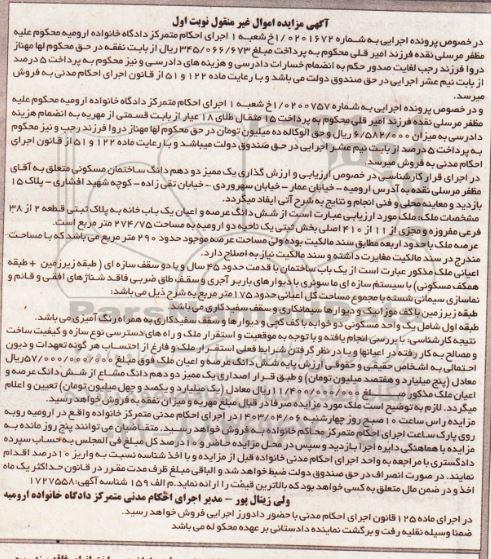 آگهی مزایده اموال غیر منقول نوبت اول
در خصوص پرونده اجرایی به شماره ۰۲۰۱۶۷۲/۱خ شعبه ۱ اجرای احکام متمرکز دادگاه خانواده ارومیه محکوم علیه
مظفر مرسلی نقده فرزند امیر قلی محکوم به پرداخت مبلغ ۳۴۵/۰۶۶/۶۷۳ ریال از بابت نفقه در حق محکوم لها مهناز
دروا فرزند رجب لغایت صدور حکم به انضمام خسارات دادرسی و هزینه های دادرسی و نیز محکوم به پرداخت ۵ درصد
از بابت نیم عشر اجرایی در حق صندوق دولت می باشد و با رعایت ماده ۱۲۲ و ۵۱ از قانون اجرای احکام مدنی به فروش
میرسد.
و در خصوص پرونده اجرایی به شماره ۰۲۰۰۷۵۷/۱خ شعبه ۱ اجرای احکام متمرکز دادگاه خانواده ارومیه محکوم علیه
مظفر مرسلی نقده فرزند امیر قلی محکوم به پرداخت ۱۵ مثقال طلای ۱۸ عیار از بابت قسمتی از مهریه به انضمام هزینه
دادرسی به میزان ۶/۵۸۲/۰۰۰ ریال و حق الوکاله ده میلیون تومان در حق محکوم لها مهناز دروا فرزند رجب و نیز محکوم
به پرداخت ۵ درصد از بابت نیم عشر اجرایی در حق صندوق دولت میباشد و با رعایت ماده ۱۲۲ و ۵۱ از قانون اجرای
احکام مدنی به فروش میرسد.
در اجرای قرار کارشناسی در خصوص ارزیابی و ارزش گذاری یک ممیز دو دهم دانگ ساختمان مسکونی متعلق به آقای
مظفر مرسلی نقده به آدرس ارومیه - خیابان عمار - خیابان سهروردی - خیابان تقی زاده - کوچه شهید افشاری - پلاک ۱۵
بازدید و معاینه محلی و فنی انجام و نتایج به شرح آتی ایفاد میگردد.
مشخصات ملک: ملک مورد ارزیابی عبارت است از شش دانگ عرصه و اعیان یک باب خانه به پلاک ثبتی قطعه ۲ از ۳۸
فرعی مفروزه و مجزی از ۱۱ از ۴۱۰ اصلی بخش ثبتی یک ناحیه دو ارومیه به مساحت ۲۷۴/۷۵ متر مربع است.
عرصه ملک با حدود اربعه مطابق سند مالکیت بوده ولی مساحت عرصه موجود حدود ۲۹۰ متر مربع می باشد که با مساحت
مندرج در سند مالکیت مغایرت داشته و سند مالکیت نیاز به اصلاح دارد.
اعیانی ملک مذکور عبارت است از یک باب ساختمان با قدمت حدود ۴۵ سال و با دو سقف سازه ای ( طبقه زیرزمین + طبقه
همکف مسکونی) با سیستم سازه ای ما سونری با دیوارهای باربر آجری وسقف طاق ضربی فاقد شناژهای افقی و قائم و
نماسازی سیمانی شسته با مجموع مساحت کل اعیانی حدود ۱۷۵ متر مربع به شرح ذیل می باشد:
طبقه زیرزمین با کف موزاییک و دیوارها سیمانکاری و سقف سفیدکاری می باشد
طبقه اول شامل یک واحد مسکونی دو خوابه با کف گچی و دیوار ها و سقف سفیدکاری به همراه رنگ آمیزی می باشد.
نتیجه کارشناسی: با بررسی انجام یافته و با توجه به موقعیت و استقرار ملک و راه های دسترسی نوع سازه و کیفیت ساخت
و مصالح به کار رفته در اعیانها و با در نظر گرفتن شرایط فعلی استقرار ملک و فارغ از احتساب هر گونه تعهدات و دیون
احتمالی به اشخاص حقیقی و حقوقی ارزش پایه شش دانگ عرصه و اعیان ملک فوق مبلغ ۵۷/۰۰۰/۰۰۰/۰۰۰ریال
معادل (پنج میلیارد و هفتصد میلیون تومان) و طبق قرار اصداری یک ممیز دو دهم دانگ مشاع از شش دانگ عرصه و
اعیان ملک مذکور مبلغ ۱۱/۴۰۰/۰۰۰/۰۰۰ریال معادل (یک میلیارد و یکصد و چهل میلیون تومان) تعیین و اعلام
میگردد. لازم به توضیح است ملک مورد مزایده صرفا در قبال مبلغ مهریه و میزان نفقه به فروش خواهد رسید.
مزایده راس ساعت ۱۰ صبح روز چهارشنبه ۱۴۰۳/۰۴/۰۶ در اجرای احکام مدنی متمرکز خانواده واقع در ارومیه روبه
روی پارک ساعت اجرای احکام متمرکز محاکم خانواده به فروش خواهد رسید. متقاضیان می توانند پنج روز مانده به
مزایده با هماهنگی دایره اجرا بازدید و سپس در محل مزایده حاضر و ده درصد کل مبلغ فی المجلس به حساب سپرده
دادگستری با مراجعه به واحد اجرای احکام مدنی خانواده قبل از مزایده و با اخذ شناسه نسبت به واریز ۱۰درصد اقدام
نمایند. در صورت انصراف در حق صندوق دولت ضبط خواهد شد و الباقی مبلغ ظرف مدت مقرر در قانون حداکثر یک ماه
اخذ و در ضمن مال متعلق به کسی خواهد بود که بالاترین قیمت را ارائه نماید.م الف ۱۵۹ شناسه آگهی:۱۷۲۷۵۵۸
ولی زینال پور - مدیر اجرای احکام مدنی متمرکز دادگاه خانواده ارومیه
در اجرای ماده ۱۲۵ قانون اجرای احکام مدنی با حضور دادورز اجرایی فروش خواهد رسید.
ضمنا وسیله نقلیه رفت و برگشت نماینده دادستانی بر عهده محکوم له می باشد